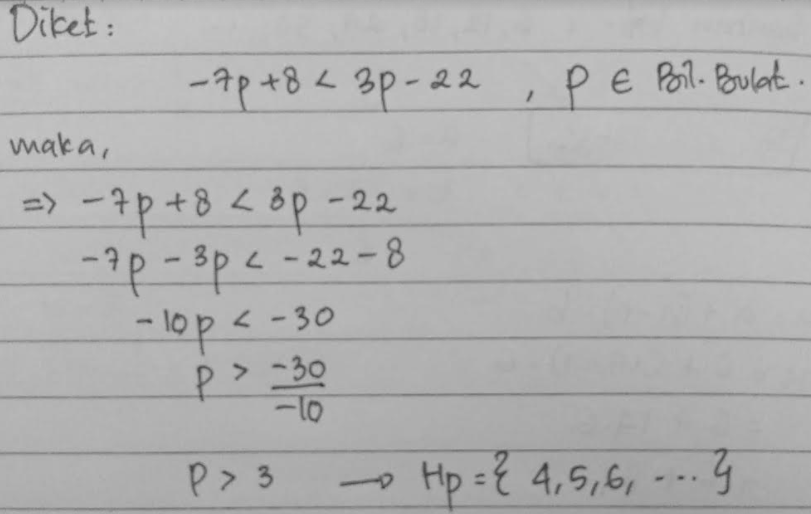 Diket:
-7p + 8 < 3p - 22 , p ∈ Bil. Bulat.
maka,
=> -7p + 8 < 3p - 22
-7p - 3p < -22 - 8
-10p < -30
p > -30
-10
p > 3 → Hp = { 4, 5, 6, ... }